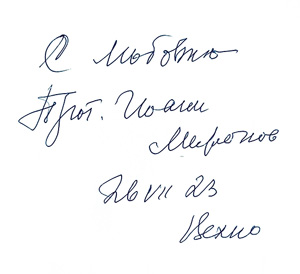 С любовию
Прот. Иоанн
Миронов
26 VII 23
Вехно